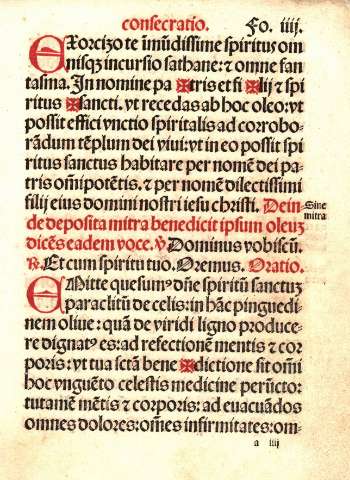 consecratio. Fo. iiij.
EXorcizo te ĩmũdissime spiritus om
nisqꝫ incursio sathane: ⁊ omne fan
tasma. In nomine pa ✠ tris et fi ✠ lij ⁊ spi
ritus ✠ sancti. vt recedas ab hoc oleo: vt
possit effici vnctio spiritalis ad corrobo-
rãdum tẽplum dei viui: vt in eo possit spi
ritus sanctus habitare per nomẽ dei pa-
tris oĩnipotẽtis. ⁊ per nomẽ dilectissimi
filij eius domini nostri iesu christi. Dein
de deposita mitra benedicit ipsum oleuꝫ
dicẽs eadem voce. ℣ Dominus vobiscũ.
℟. Et cum spiritu tuo. Oremus. Oratio.
Sine
mitra
EMitte quesumꝰ dñe spiritũ sanctuꝫ
paraclitũ de celis: in hãc pinguedi-
nem oliue: quã de viridi ligno produce-
re dignatꝰ es: ad refectionẽ mentis ⁊ cor
poris: vt tua sctã bene ✠ dictione sit oĩni
hoc vnguẽto celestis medicine perũctor
tutamẽ mẽtis ⁊ corporis: ad euacuãdos
omnes dolores: oĩnes infirmitates: om-
a iiij